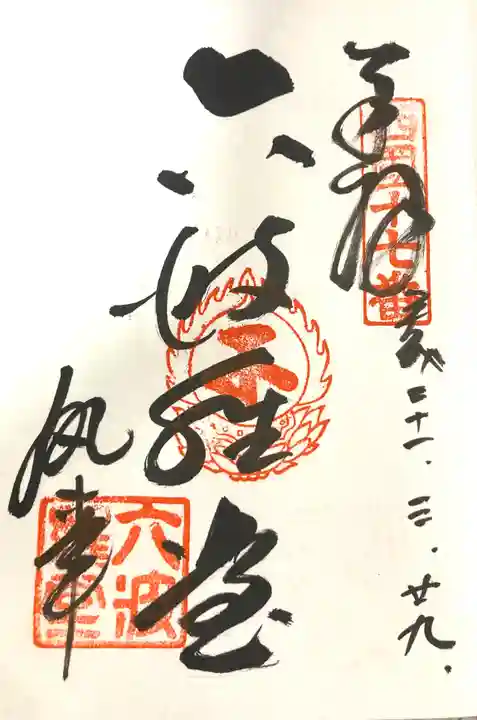 奉拝
西国十七番
平成二十一.三.廿九.
六波羅堂
六波羅堂